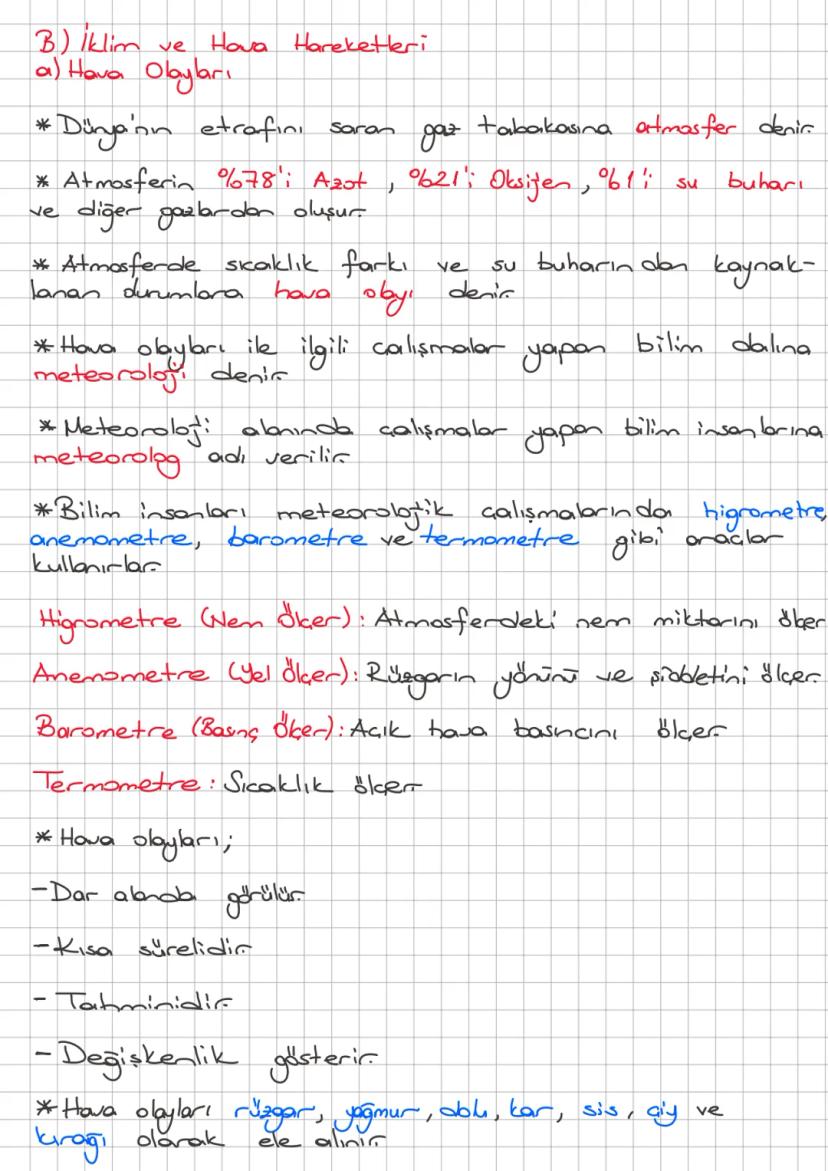 B) İklim ve Hava Hareketleri
a) Hava Olayları
* Dünya'nın etrafını saran gaz tabakasına atmosfer denir.
* Atmosferin %78'i Azot, %21'i Oksijen, %1'i su buharı
ve diğer gazlardan oluşur.
* Atmosferde sıcaklık farkı ve su buharından kaynak-
lanan durumlara hava olayı denir.
* Hava olayları ile ilgili çalışmalar yapan bilim dalına
meteoroloji denir.
* Meteoroloji alanında çalışmalar yapan bilim insanlarına
meteorolog adı verilir.
* Bilim insanları meteorolojik çalışmalarında higrometre,
anemometre, barometre ve termometre gibi araçlar
kullanırlar.
Higrometre (Nem Ölçer): Atmosferdeki nem miktarını ölçer
Anemometre (Yel Ölçer): Rüzgarın yönünü ve şiddetini ölçer.
Barometre (Basınç Ölçer): Açık hava basıncını ölçer
Termometre: Sıcaklık ölçer
* Hava olayları;
- Dar alanda görülür.
- Kısa sürelidir.
- Tahminidir.
- Değişkenlik gösterir.
* Hava olayları rüzgar, yağmur, dolu, kar, sis, çiy ve
kırağı olarak ele alınır.